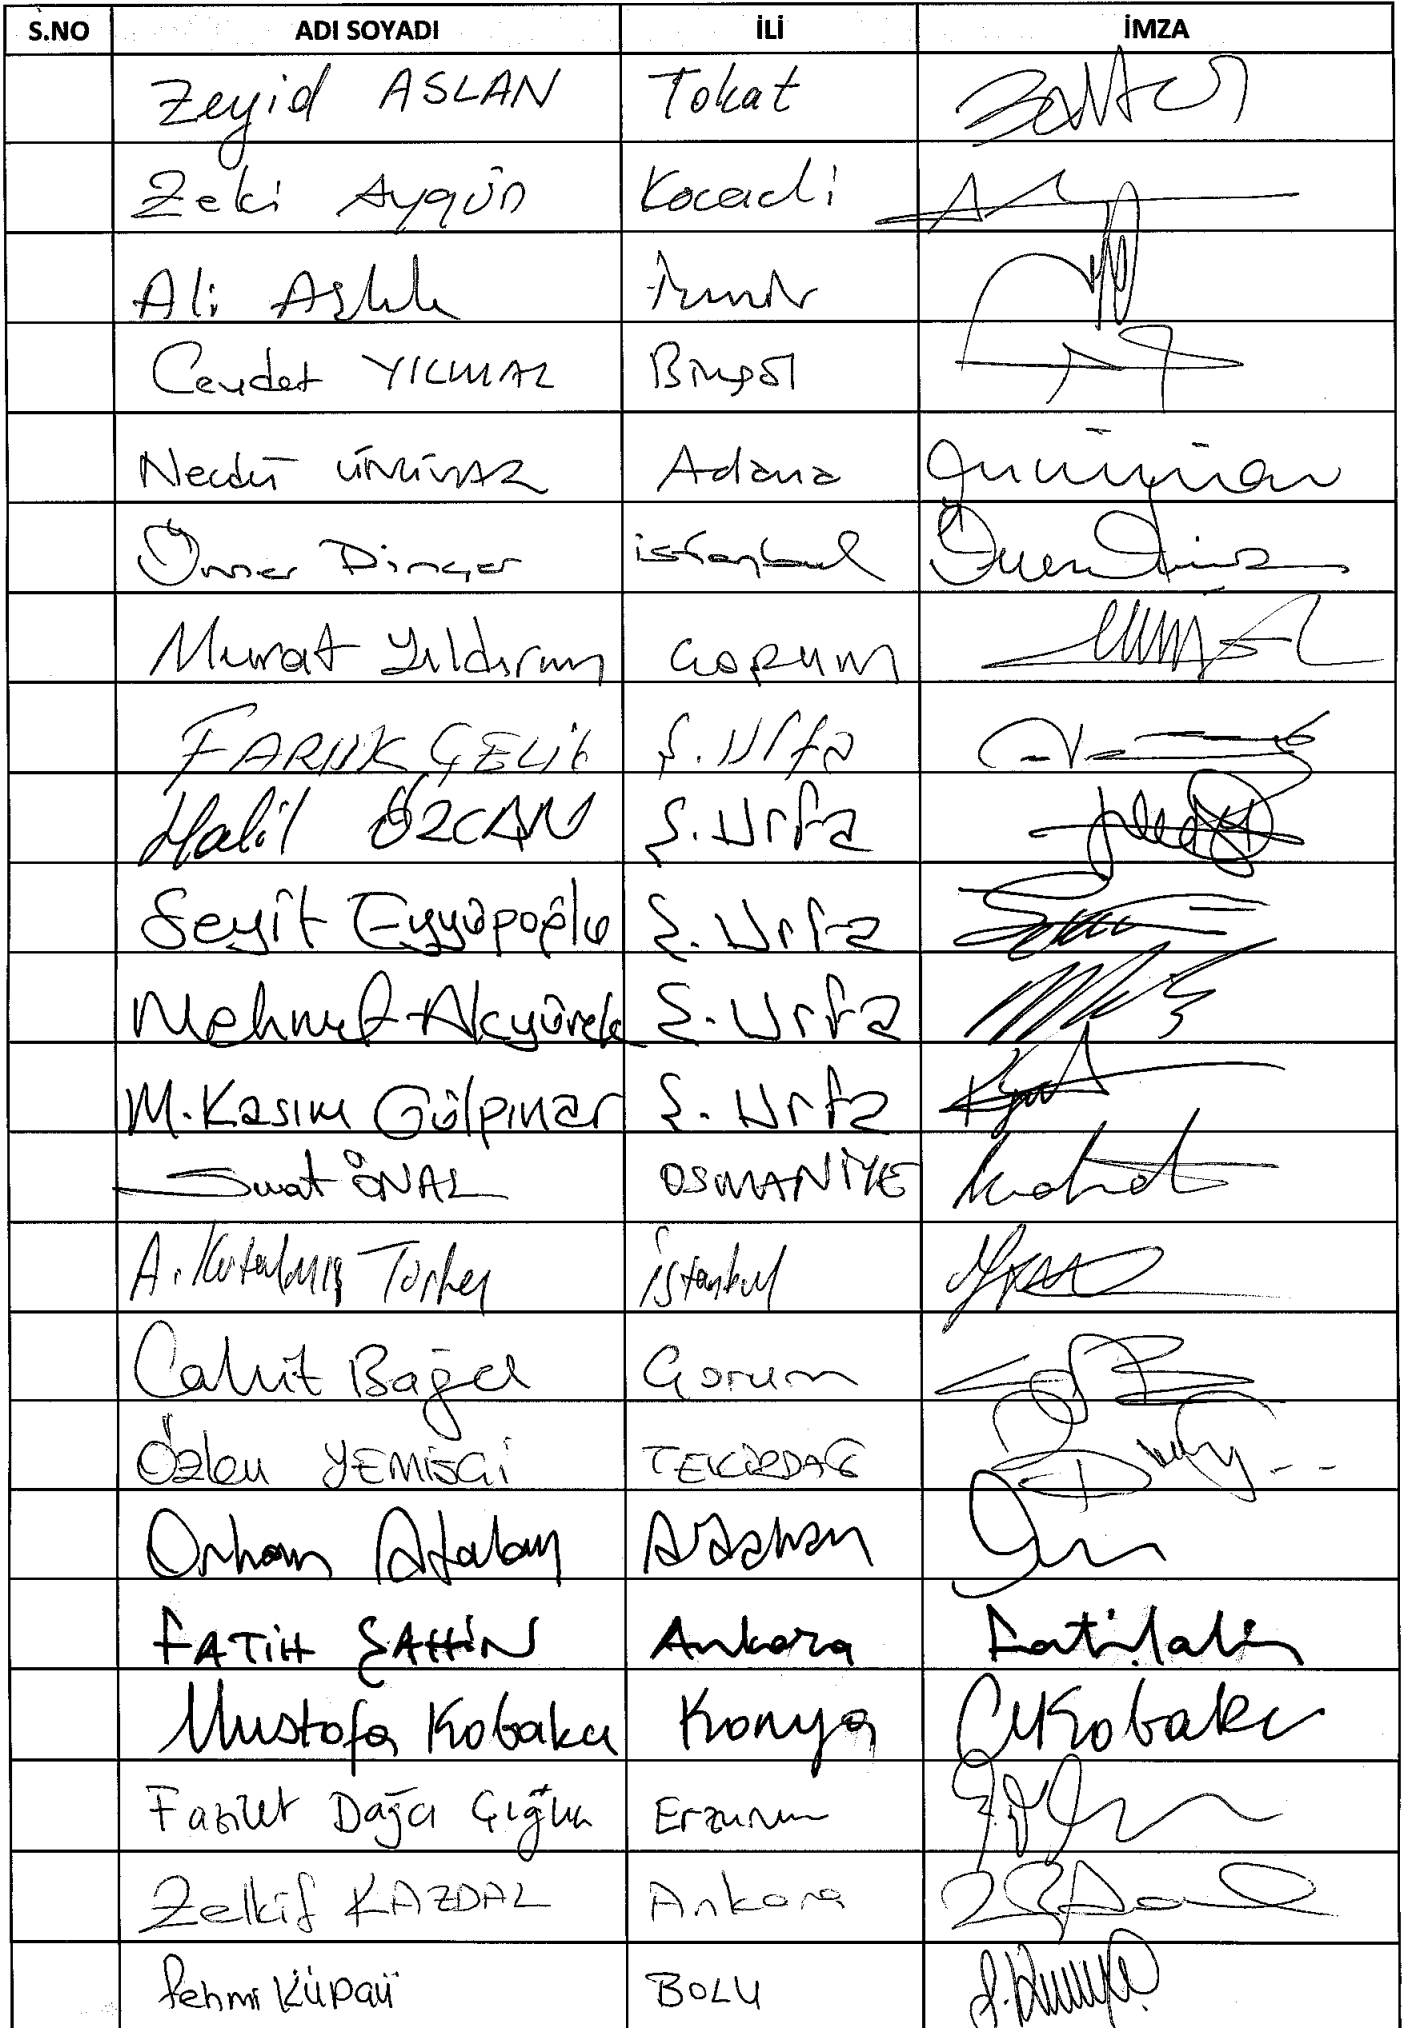 S.NO ADI SOYADI İLİ İMZA
Zeyid ASLAN Tokat
Zeki Aygün Kocaeli
Ali Aşlık İzmir
Cevdet YILMAZ Bingöl
Necdet ÜNÜVAR Adana
Ömer Dinçer istanbul
Murat Yıldırım Çorum
FARUK ÇELİK Ş.Urfa
Halil ÖZCAN Ş.Urfa
Seyit Eyyüpoğlu Ş.Urfa
Mehmet Akyürek Ş.Urfa
M.Kasım Gülpınar Ş.Urfa
Suat ÖNAL OSMANİYE
A. Kutalmış Türkeş İstanbul
Cahit Bağcı Çorum
Özlem YEMİŞÇİ TEKİRDAĞ
Orhan Atalay Ardahan
FATİH ŞAHİN Ankara
Mustafa Kabakcı Konya
Fazilet Dağcı Çığlık Erzurum
Zelkif KAZDAL Ankara
Fehmi KÜPÇÜ BOLU